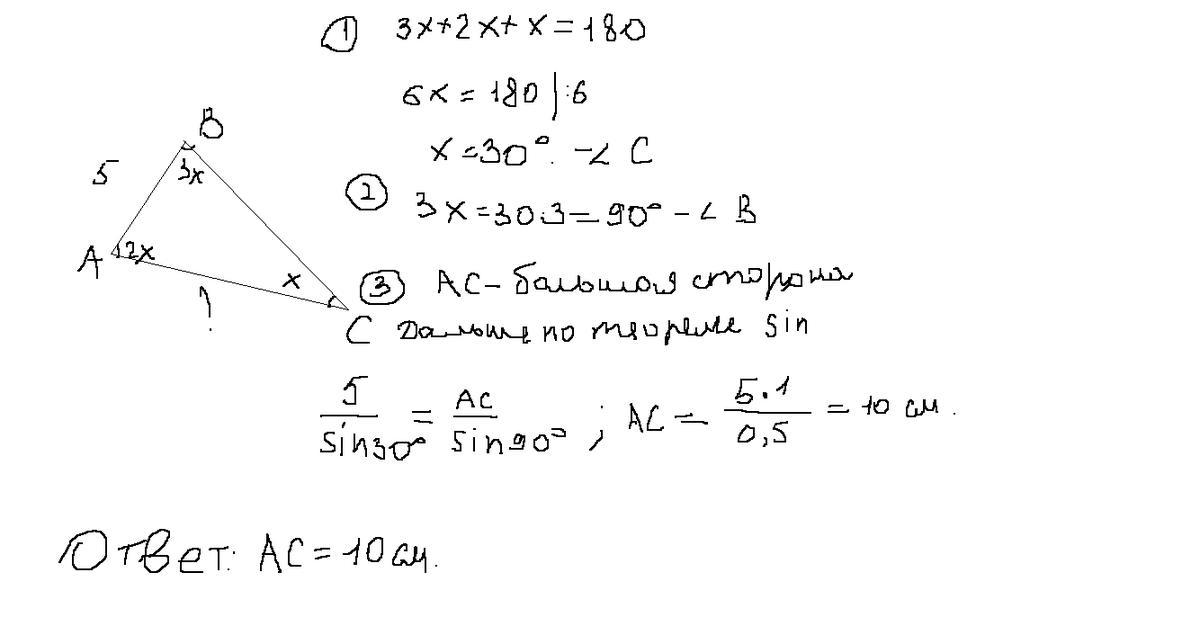 ① 3x+2x+x=180
6x=180 |:6
x=30°. -∠ C
② 3x=30.3=90° -∠ B
B
5
3x
A
2x
x
?
C
③ AC- большая сторона
Дальше по теореме sin
5/sin30° = AC/sin90° ; AC = 5·1/0,5 = 10 см.
Ответ: AC=10 см.